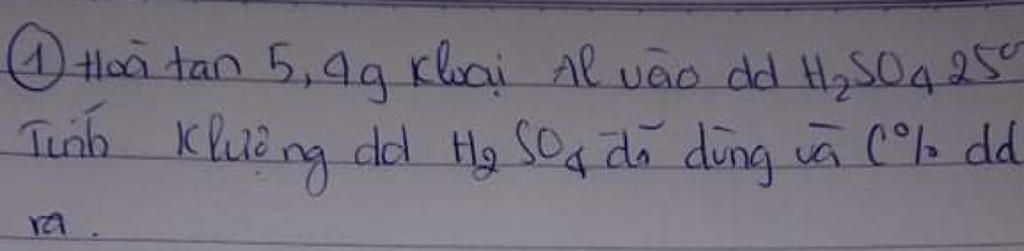 ① Hoà tan 5,4g kloại Al vào dd H₂SO₄ 25%
Tính khlường dd H₂SO₄ đã dùng và C% dd
ra.